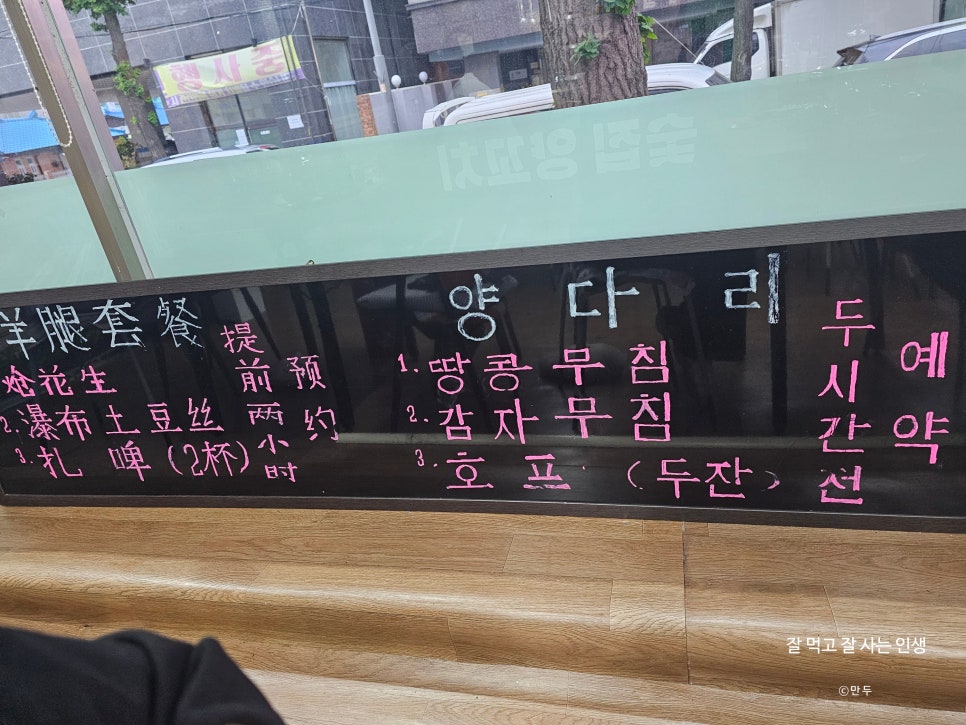 숯집 양꼬치
羊腿套餐
炝花生
2.瀑布土豆丝
3.扎啤(2杯)
提前两小时
预约
양다리
1.땅콩무침
2.감자무침
3.호프(두잔)
두시간전
예약
잘 먹고 잘 사는 인생
©만두